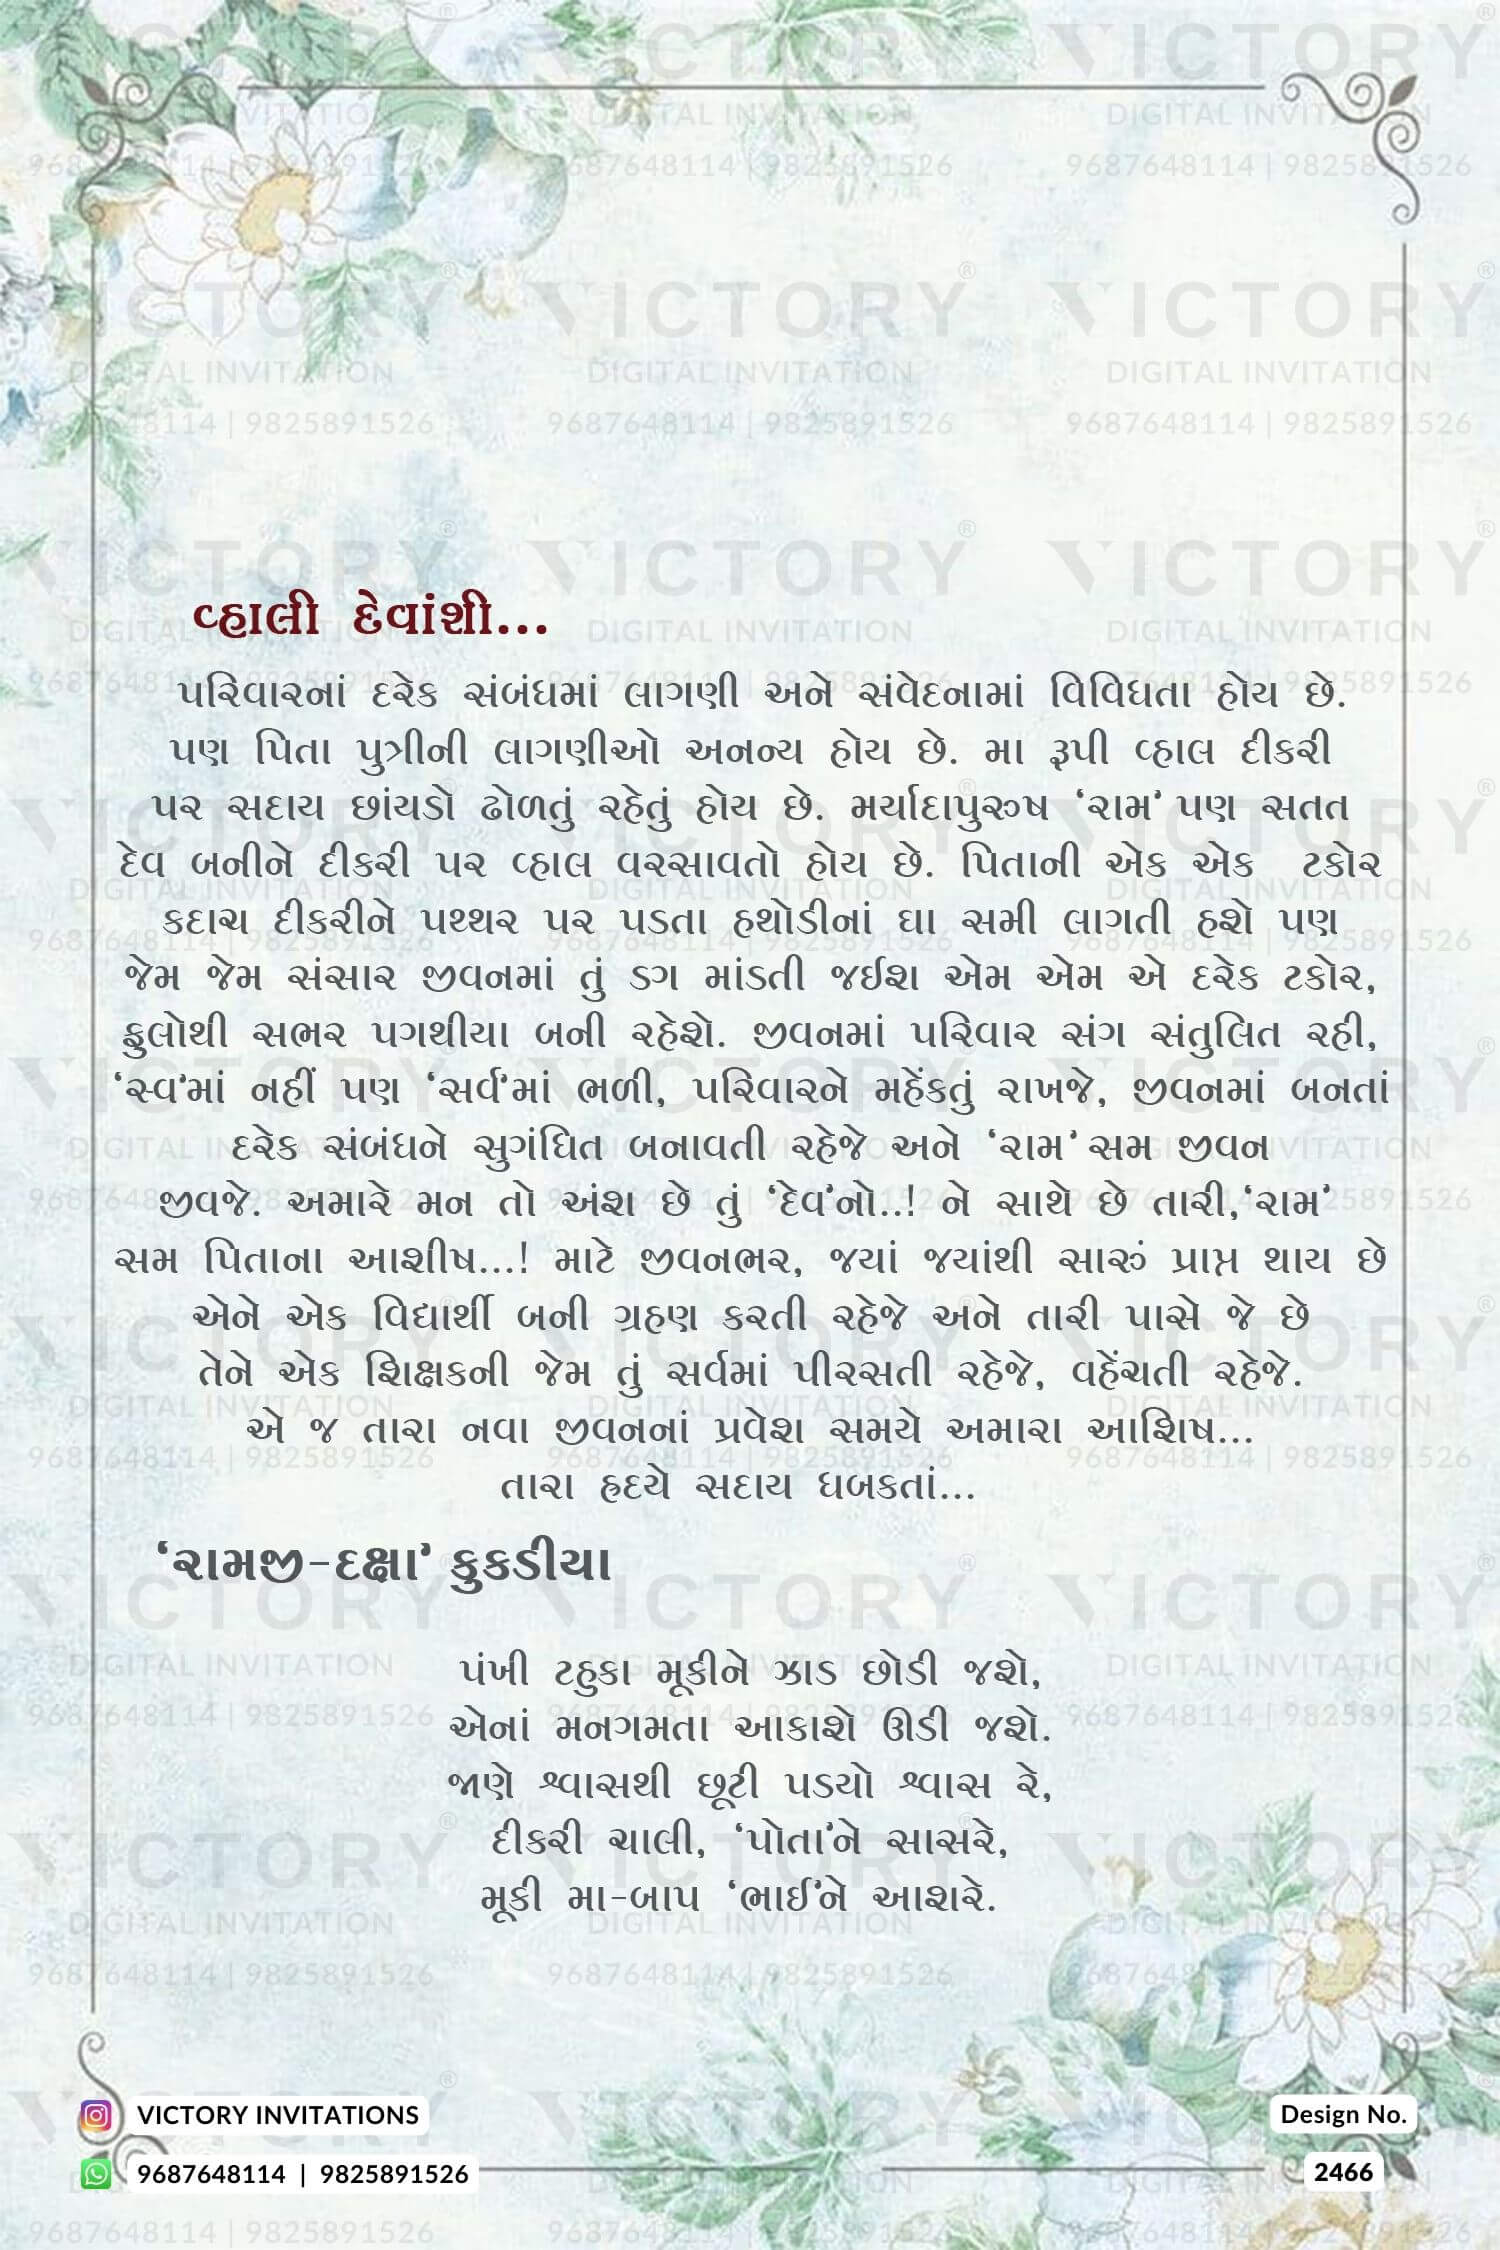 વ્હાલી દેવાંશી...
પરિવારનાં દરેક સંબંધમાં લાગણી અને સંવેદનામાં વિવિધતા હોય છે.
પણ પિતા પુત્રીની લાગણીઓ અનન્ય હોય છે. મા રૂપી વ્હાલ દીકરી
પર સદાય છાંયડો ઢોળતું રહેતું હોય છે. મર્યાદાપુરુષ ‘રામ’ પણ સતત
દેવ બનીને દીકરી પર વ્હાલ વરસાવતો હોય છે. પિતાની એક એક ટકોર
કદાચ દીકરીને પથ્થર પર પડતા હથોડીનાં ઘા સમી લાગતી હશે પણ
જેમ જેમ સંસાર જીવનમાં તું ડગ માંડતી જઈશ એમ એમ એ દરેક ટકોર,
ફુલોથી સભર પગથીયા બની રહેશે. જીવનમાં પરિવાર સંગ સંતુલિત રહી,
‘સ્વ’માં નહીં પણ ‘સર્વ’માં ભળી, પરિવારને મહેંકતું રાખજે, જીવનમાં બનતાં
દરેક સંબંધને સુગંધિત બનાવતી રહેજે અને ‘રામ’ સમ જીવન
જીવજે. અમારે મન તો અંશ છે તું ‘દેવ’નો..! ને સાથે છે તારી,‘રામ’
સમ પિતાના આશીષ...! માટે જીવનભર, જયાં જયાંથી સારું પ્રાપ્ત થાય છે
એને એક વિદ્યાર્થી બની ગ્રહણ કરતી રહેજે અને તારી પાસે જે છે
તેને એક શિક્ષકની જેમ તું સર્વમાં પીરસતી રહેજે, વહેંચતી રહેજે.
એ જ તારા નવા જીવનનાં પ્રવેશ સમયે અમારા આશિષ...
તારા હ્રદયે સદાય ધબકતાં...
‘રામજી-દક્ષા’ કુકડીયા
પંખી ટહુકા મૂકીને ઝાડ છોડી જશે,
એનાં મનગમતા આકાશે ઊડી જશે.
જાણે શ્વાસથી છૂટી પડયો શ્વાસ રે,
દીકરી ચાલી, ‘પોતા’ને સાસરે,
મૂકી મા-બાપ ‘ભાઈ’ને આશરે.
VICTORY INVITATIONS
Design No.
9687648114 | 9825891526
2466
VICTORY
DIGITAL INVITATION
9687648114 | 9825891526